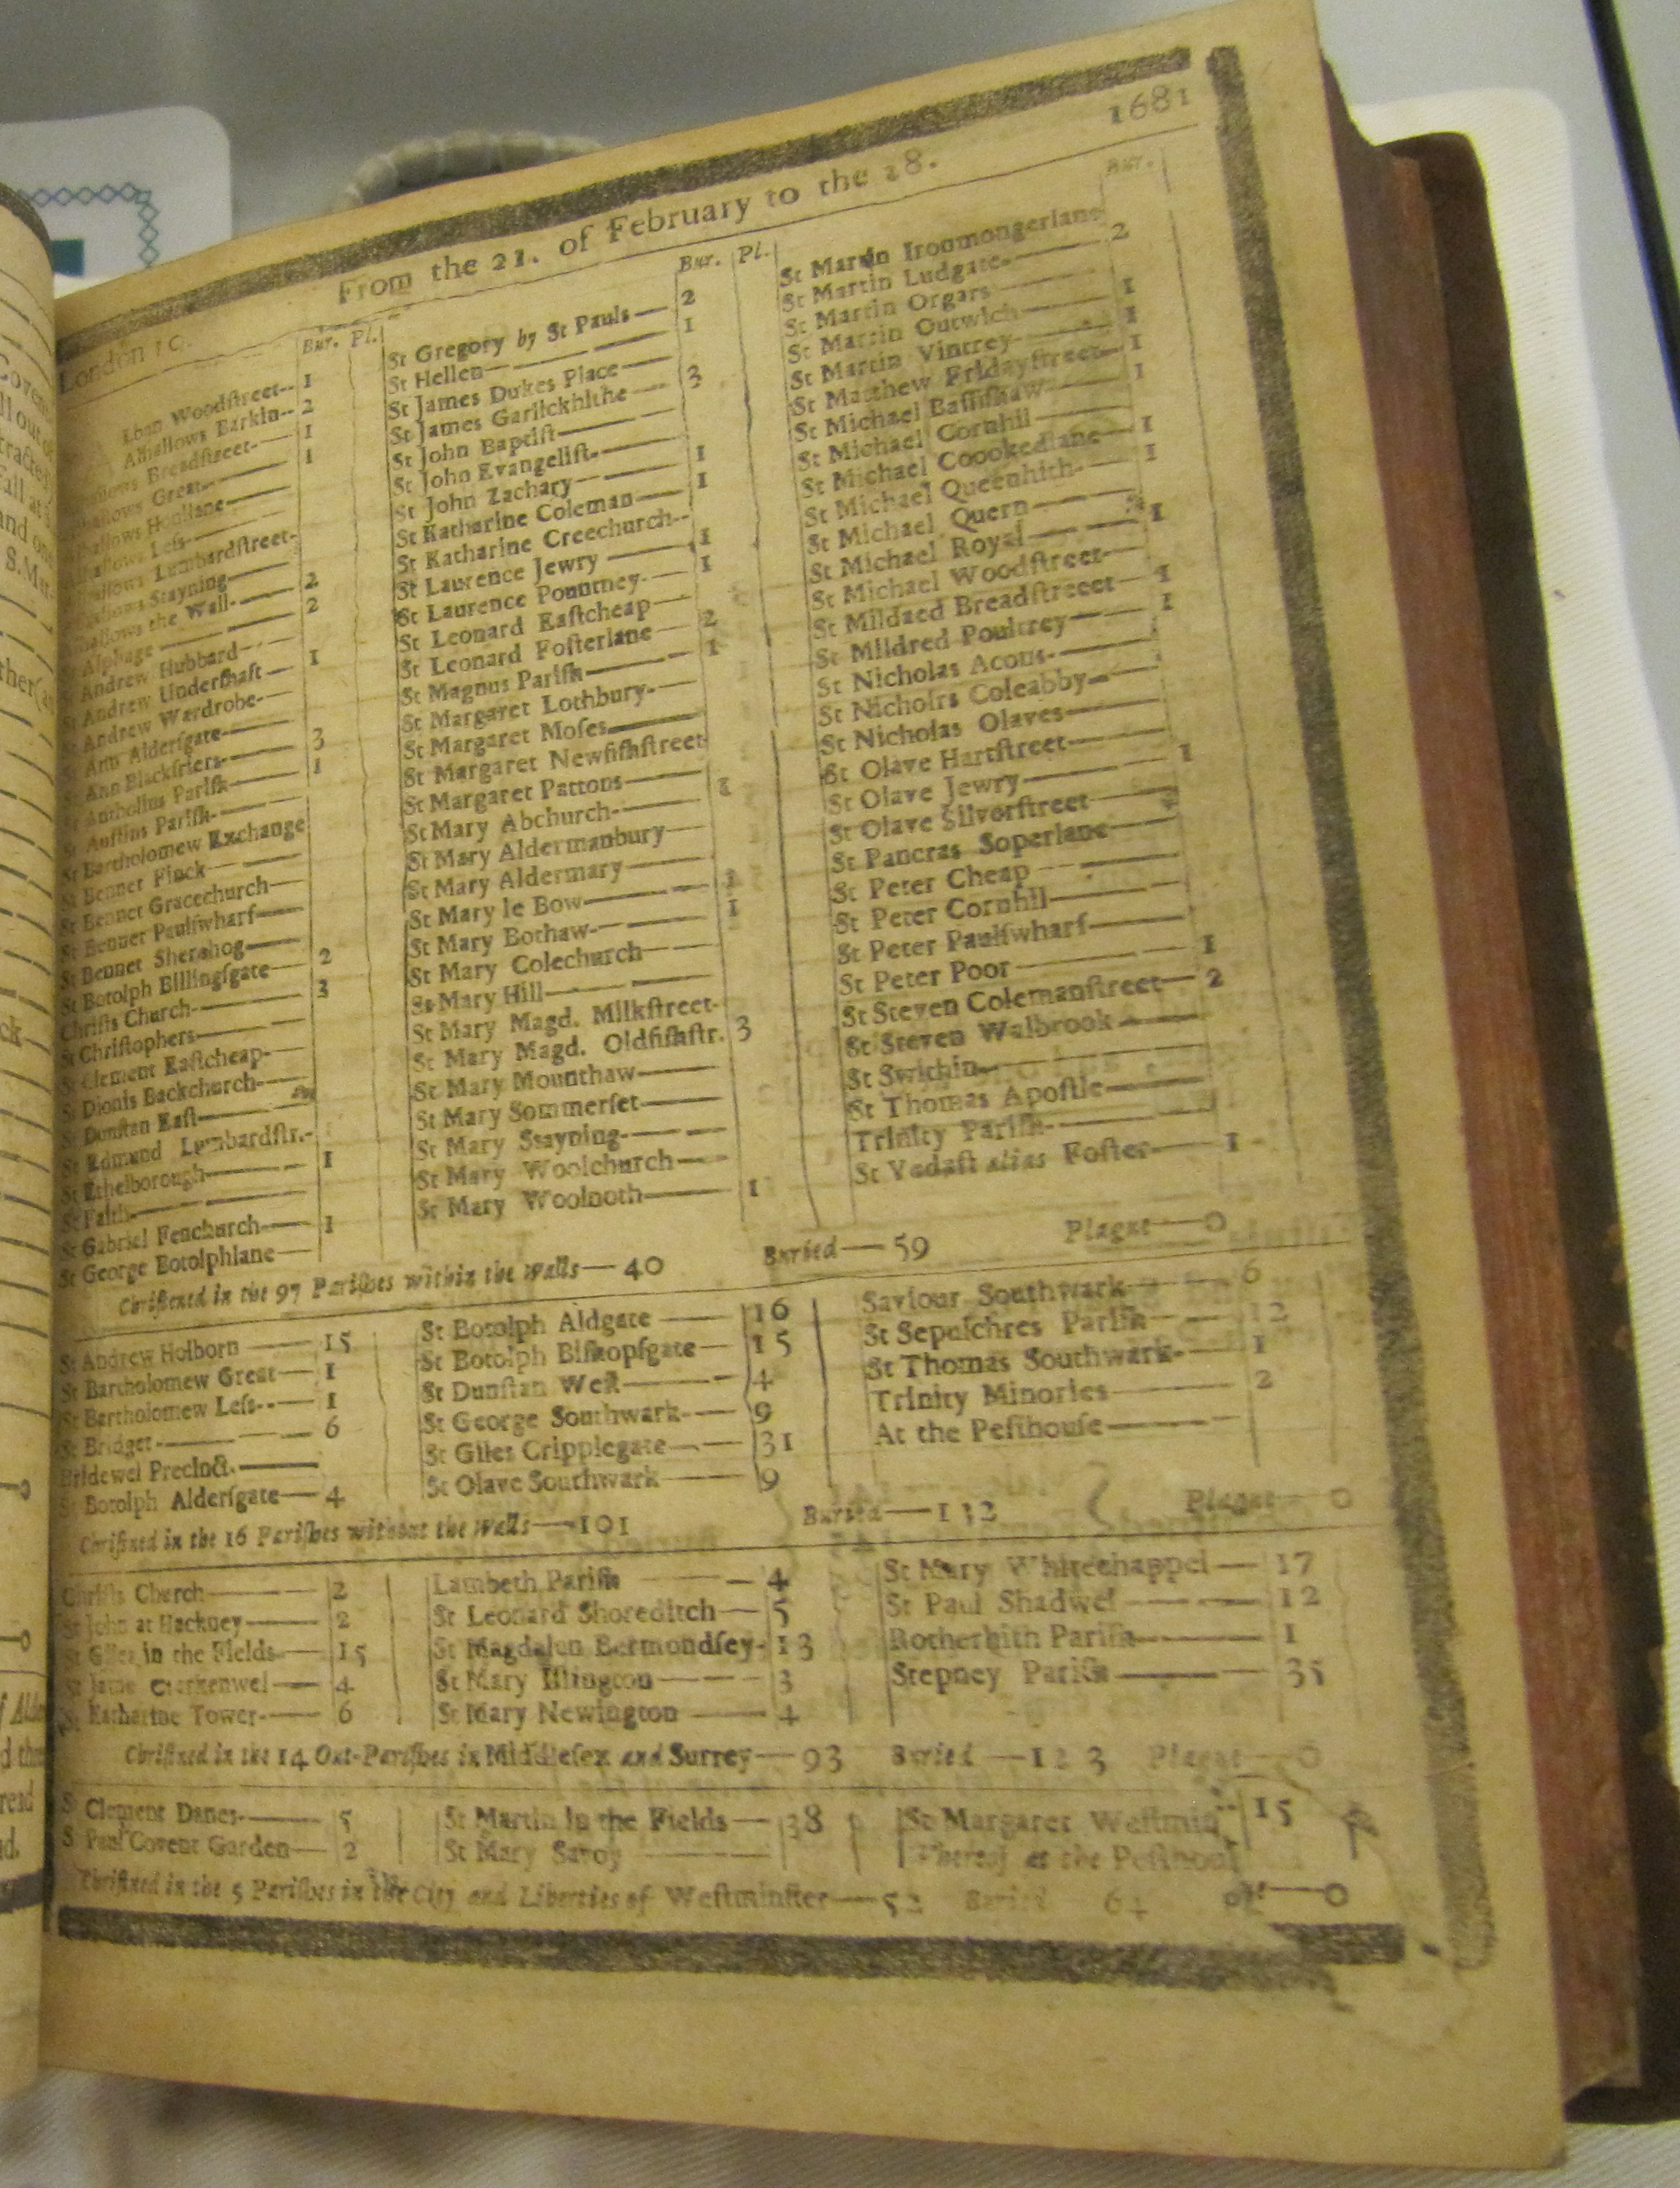 1681
From the 21. of February to the 28.
London 10.
Bur. Pl.
Woodſtreet-- 1
Alhallows Barkin-- 2
Breadſtreet— 1
Great— 1
Honilane—
Leſs—
Lumbardſtreet-
Stayning—
the Wall— 2
Alphage — 2
Andrew Hubbard—
St Andrew Underſhaft — 1
St Andrew Wardrobe-
St Ann Alderſgate—
St Ann Blackfriers— 3
St Antholins Pariſh— 1
St Auſtins Pariſh—
St Bartholomew Exchange
St Bennet Finck—
St Bennet Gracechurch—
St Bennet Paulſwharf—
St Bennet Sherehog—
St Botolph Billingſgate— 2
Chriſts Church— 3
St Chriſtophers—
St Clement Eaſtcheap-
St Dionis Backchurch—
St Dunſtan Eaſt—
St Edmund Lumbardſtr.-
St Ethelborough— 1
St Faith—
St Gabriel Fenchurch— 1
St George Botolphlane—
Bur. Pl.
St Gregory by St Pauls— 2
St Hellen— 1
St James Dukes Place—
St James Garlickhithe — 3
St John Baptiſt—
St John Evangeliſt-
St John Zachary— 1
St Katharine Coleman— 1
St Katharine Creechurch--
St Laurence Jewry — 1
St Laurence Pountney— 1
St Leonard Eaſtcheap—
St Leonard Foſterlane — 2
St Magnus Pariſh— 1
St Margaret Lothbury-
St Margaret Moſes—
St Margaret Newfiſhſtreet
St Margaret Pattons— 1
St Mary Abchurch-
St Mary Aldermanbury—
St Mary Aldermary—
St Mary le Bow— 1
St Mary Bothaw— 1
St Mary Colechurch—
St Mary Hill—
St Mary Magd. Milkſtreet-
St Mary Magd. Oldfiſhſtr. 3
St Mary Mounthaw—
St Mary Sommerſet—
St Mary Stayning—
St Mary Woolchurch—
St Mary Woolnoth— 1
Bur.
St Martin Ironmongerlane
St Martin Ludgate— 2
St Martin Orgars—
St Martin Outwich— 1
St Martin Vintrey— 1
St Matthew Fridayſtreet— 1
St Michael Baſſiſhaw— 1
St Michael Cornhil—
St Michael Coookedlane— 1
St Michael Queenhith— 1
St Michael Quern—
St Michael Royal— 1
St Michael Woodſtreet-
St Mildaed Breadſtreeet — 1
St Mildred Poultrey— 1
St Nicholas Acons—
St Nicholrs Coleabby—
St Nicholas Olaves—
St Olave Hartſtreet—
St Olave Jewry— 1
St Olave Silverſtreet—
St Pancras Soperlane—
St Peter Cheap—
St Peter Cornhil—
St Peter Paulſwharf—
St Peter Poor— 1
St Steven Colemanſtreet— 2
St Steven Walbrook—
St Swithin—
St Thomas Apoſtle—
Trinity Pariſh—
St Vedaſt alias Foſter— 1
Chriſtned in the 97 Pariſhes within the Walls— 40 Buried— 59 Plague— 0
St Andrew Holborn — 15
St Bartholomew Great— 1
St Bartholomew Leſs-- 1
St Bridget — 6
Bridewel Precinct—
St Botolph Alderſgate— 4
St Botolph Aldgate — 16
St Botolph Biſhopſgate— 15
St Dunſtan Weſt— 4
St George Southwark— 9
St Giles Cripplegate— 31
St Olave Southwark— 9
Saviour Southwark— 6
St Sepulchres Pariſh— 12
St Thomas Southwark— 1
Trinity Minories— 2
At the Peſthouſe—
Chriſtned in the 16 Pariſhes without the Walls— 101 Buried— 132 Plague— 0
Chriſts Church— 2
St John at Hackney— 2
St Giles in the Fields— 15
St James Clerkenwel— 4
St Katharine Tower— 6
Lambeth Pariſh — 4
St Leonard Shoreditch— 5
St Magdalen Bermondſey- 13
St Mary Iſlington— 3
St Mary Newington — 4
St Mary Whitechappel— 17
St Paul Shadwel — 12
Rotherhith Pariſh— 1
Stepney Pariſh — 35
Chriſtned in the 14 Out-Pariſhes in Middleſex and Surrey— 93 Buried — 123 Plague — 0
St Clement Danes— 5
St Paul Covent Garden— 2
St Martin in the Fields — 38
St Mary Savoy —
St Margaret Weſtmin 15
Whereof at the Peſthouſ
Chriſtned in the 5 Pariſhes in the City and Liberties of Weſtminſter— 52 Buried 64 — 0